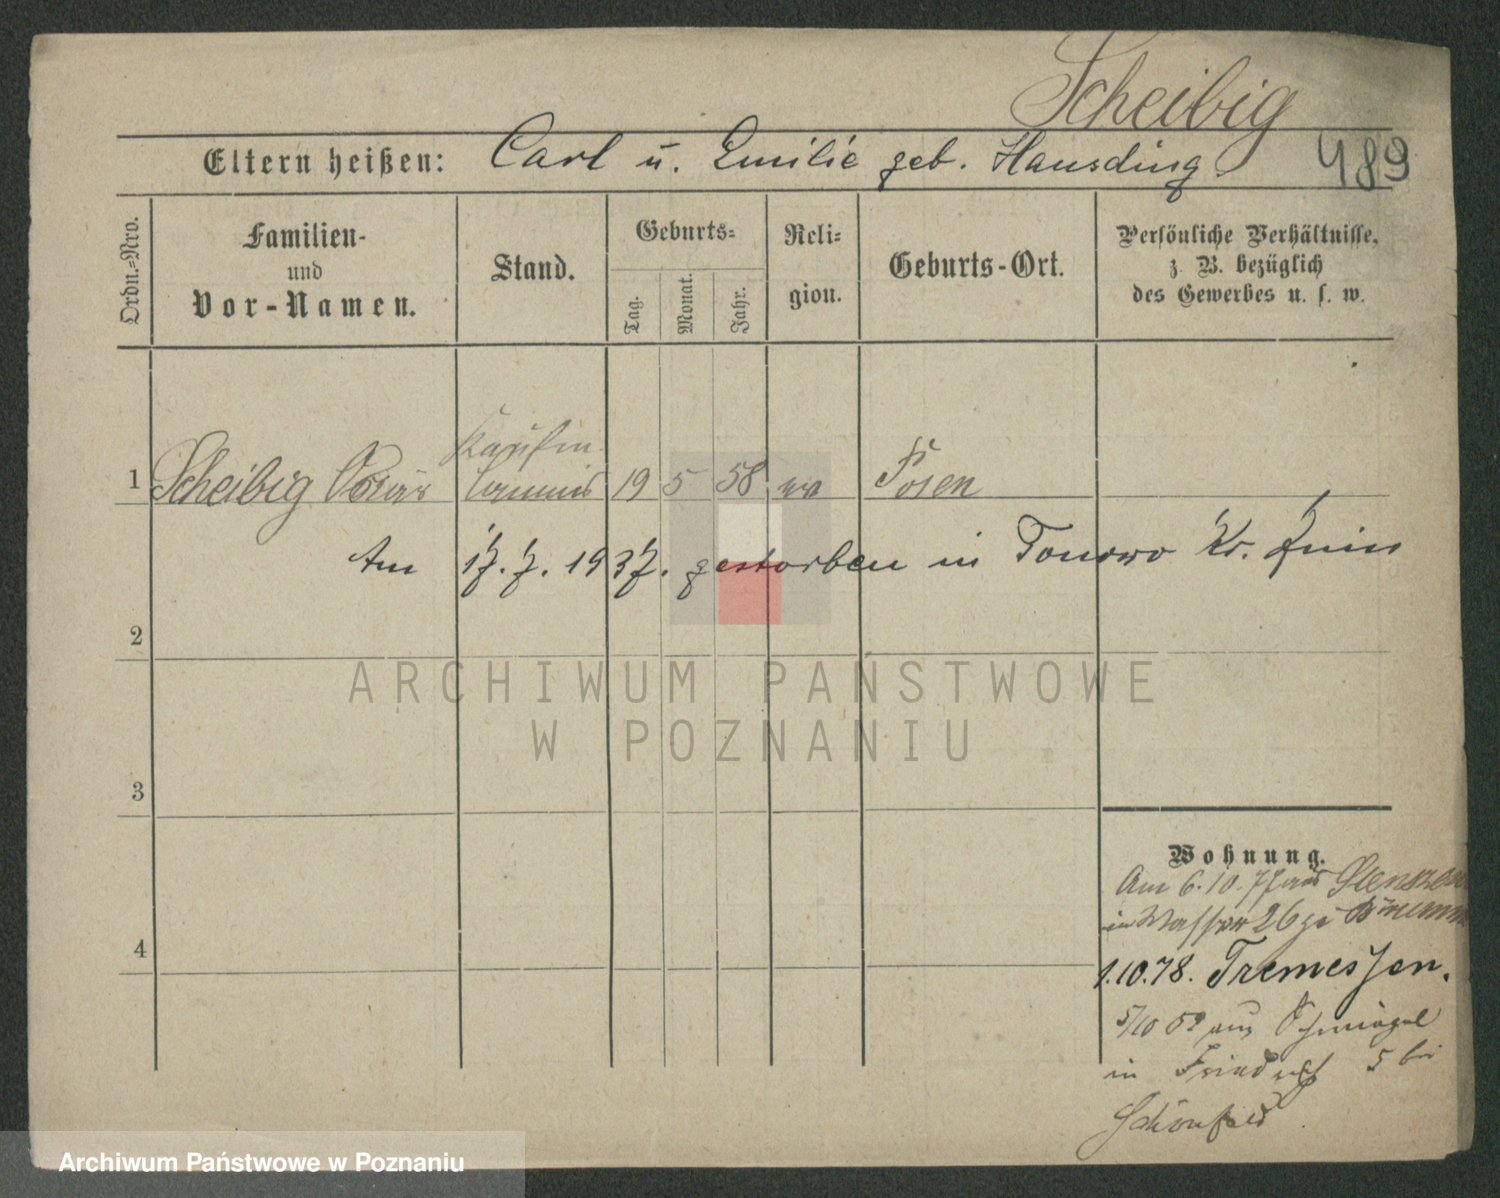 Scheibig
Eltern heißen: Carl u. Emilie geb. Hausding.
489
Ordn.=Nro.
Familien-
und
Vor-Namen.
Stand.
Geburts=
Tag.
Monat.
Jahr.
Reli=
gion.
Geburts-Ort.
Persönliche Verhältnisse,
z. B. bezüglich
des Gewerbes u. s. w.
1 Scheibig Oscar Kaufm. Commis 19 5 58 ev Posen
Am 17. 7. 1937. gestorben in Tonowo Kr. Znin
2
ARCHIWUM PAŃSTWOWE
W POZNANIU
3
Wohnung.
Am 6.10.77 aus
in Wasser 26 zu
4
1.10.78. Tremessen.
5/10 aus
in 5 bei
Schönfeld
Archiwum Państwowe w Poznaniu